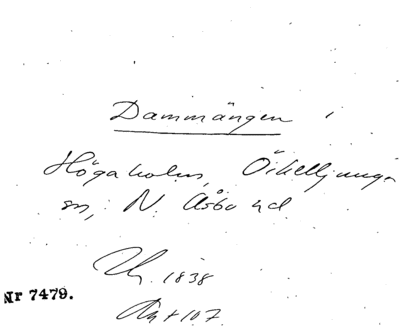 Dammängen
Högaholm, Örkelljunga
sn, N. Åsbo hd
1838
Nr 7479.
107.